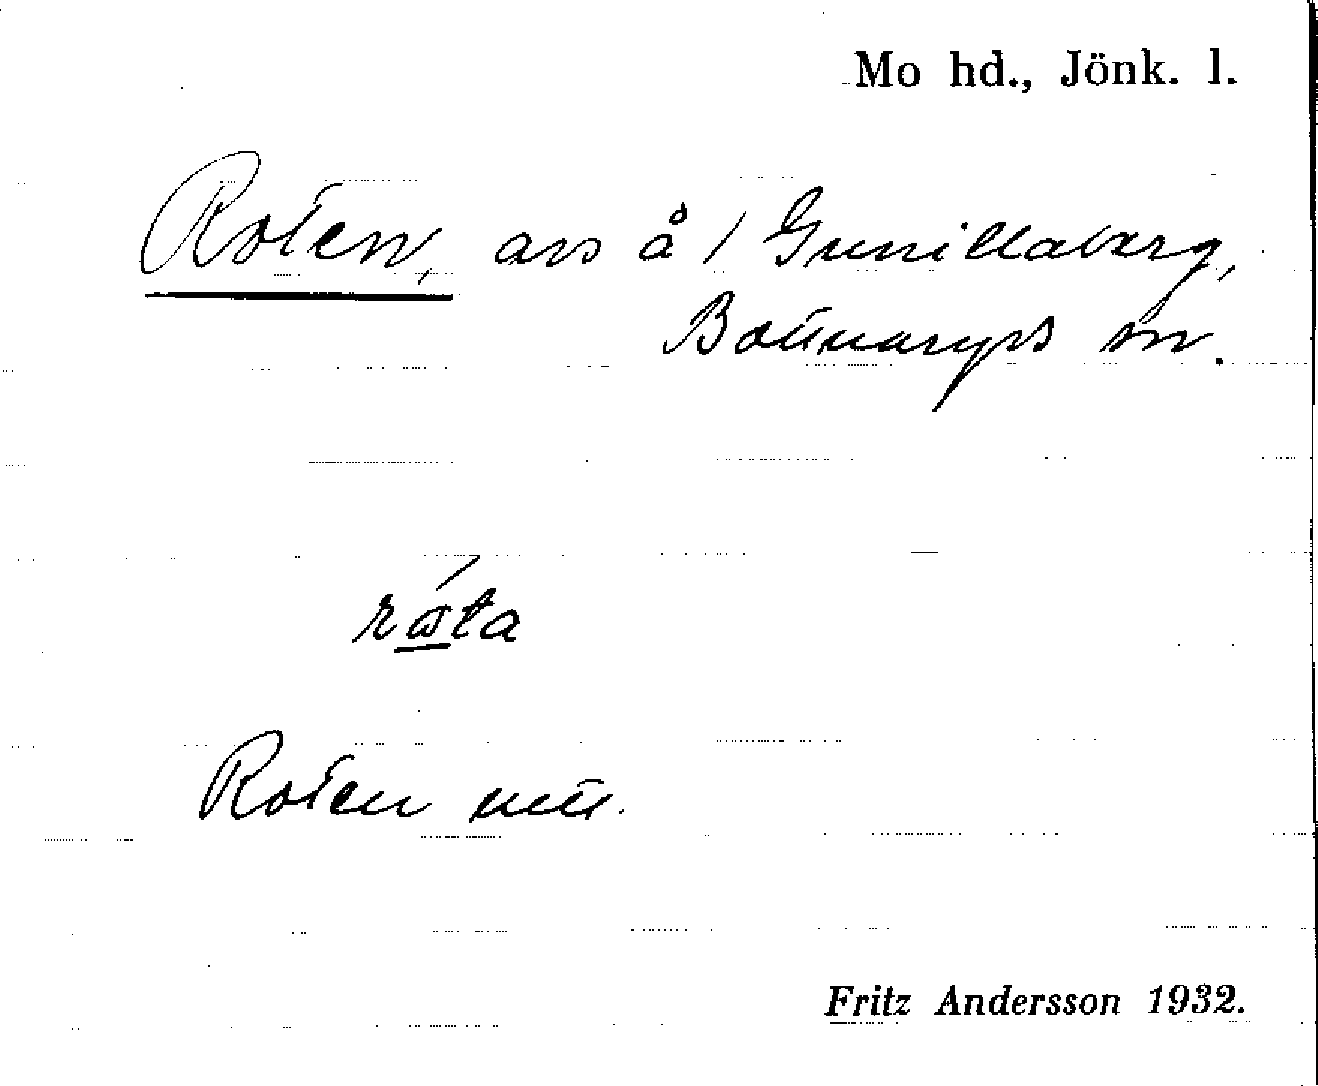 Mo hd., Jönk. l.
Roten, avs å 1 Gunillaberg,
Bottnaryds sn.
råta
Roten mtl.
Fritz Andersson 1932.